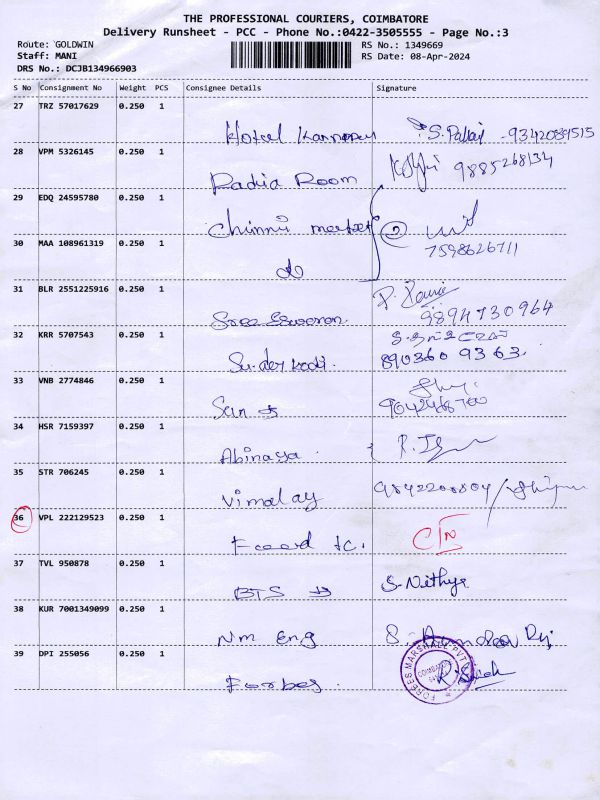 THE PROFESSIONAL COURIERS, COIMBATORE
Delivery Runsheet - PCC - Phone No.:0422-3505555 - Page No.:3
Route: GOLDWIN RS No.: 1349669
Staff: MANI RS Date: 08-Apr-2024
DRS No.: DCJB134966903
S No Consignment No Weight PCS Consignee Details Signature
27 TRZ 57017629 0.250 1
Hotel S. - 9342089515
28 VPM 5326145 0.250 1
Radiia Room 9885268134
29 EDQ 24595780 0.250 1
Chinnu market 2
30 MAA 108961319 0.250 1
do 7598626711
31 BLR 2551225916 0.250 1
Sree Eswaran 9894730964
32 KRR 5707543 0.250 1
890360 9363
33 VNB 2774846 0.250 1
San
34 HSR 7159397 0.250 1
Abinaya
35 STR 706245 0.250 1
Vimalay 9842208804
36 VPL 222129523 0.250 1
37 TVL 950878 0.250 1
BTS S. Nithya
38 KUR 7001349099 0.250 1
Nm Eng
39 DPI 255056 0.250 1
Forbes